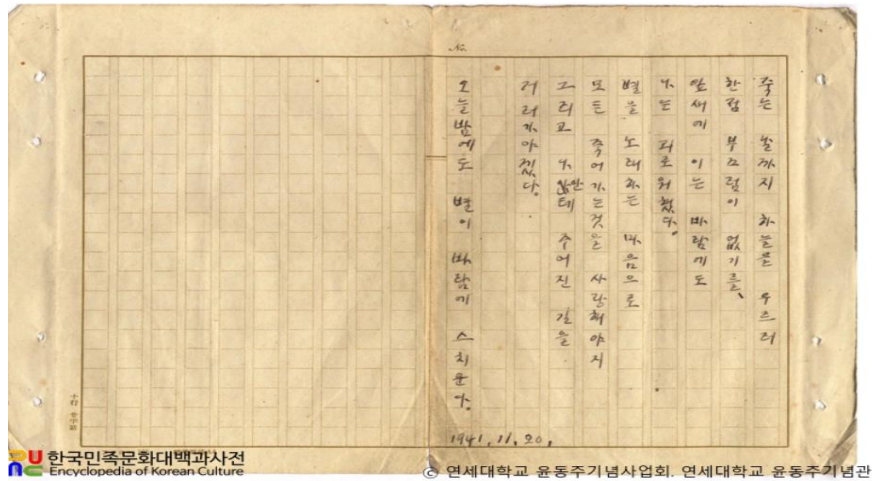 No.
죽는 날까지 하늘을 우르러
한점 부끄럼이 없기를、
잎새에 이는 바람에도
나는 괴로워했다。
별을 노래하는 마음으로
모든 죽어가는것을 사랑해야지
그리고 나안테 주어진 길을
거러가야겠다。
오늘밤에도 별이 바람에 스치운다。
1941. 11. 20.
한국민족문화대백과사전
Encyclopedia of Korean Culture
ⓒ 연세대학교 윤동주기념사업회. 연세대학교 윤동주기념관